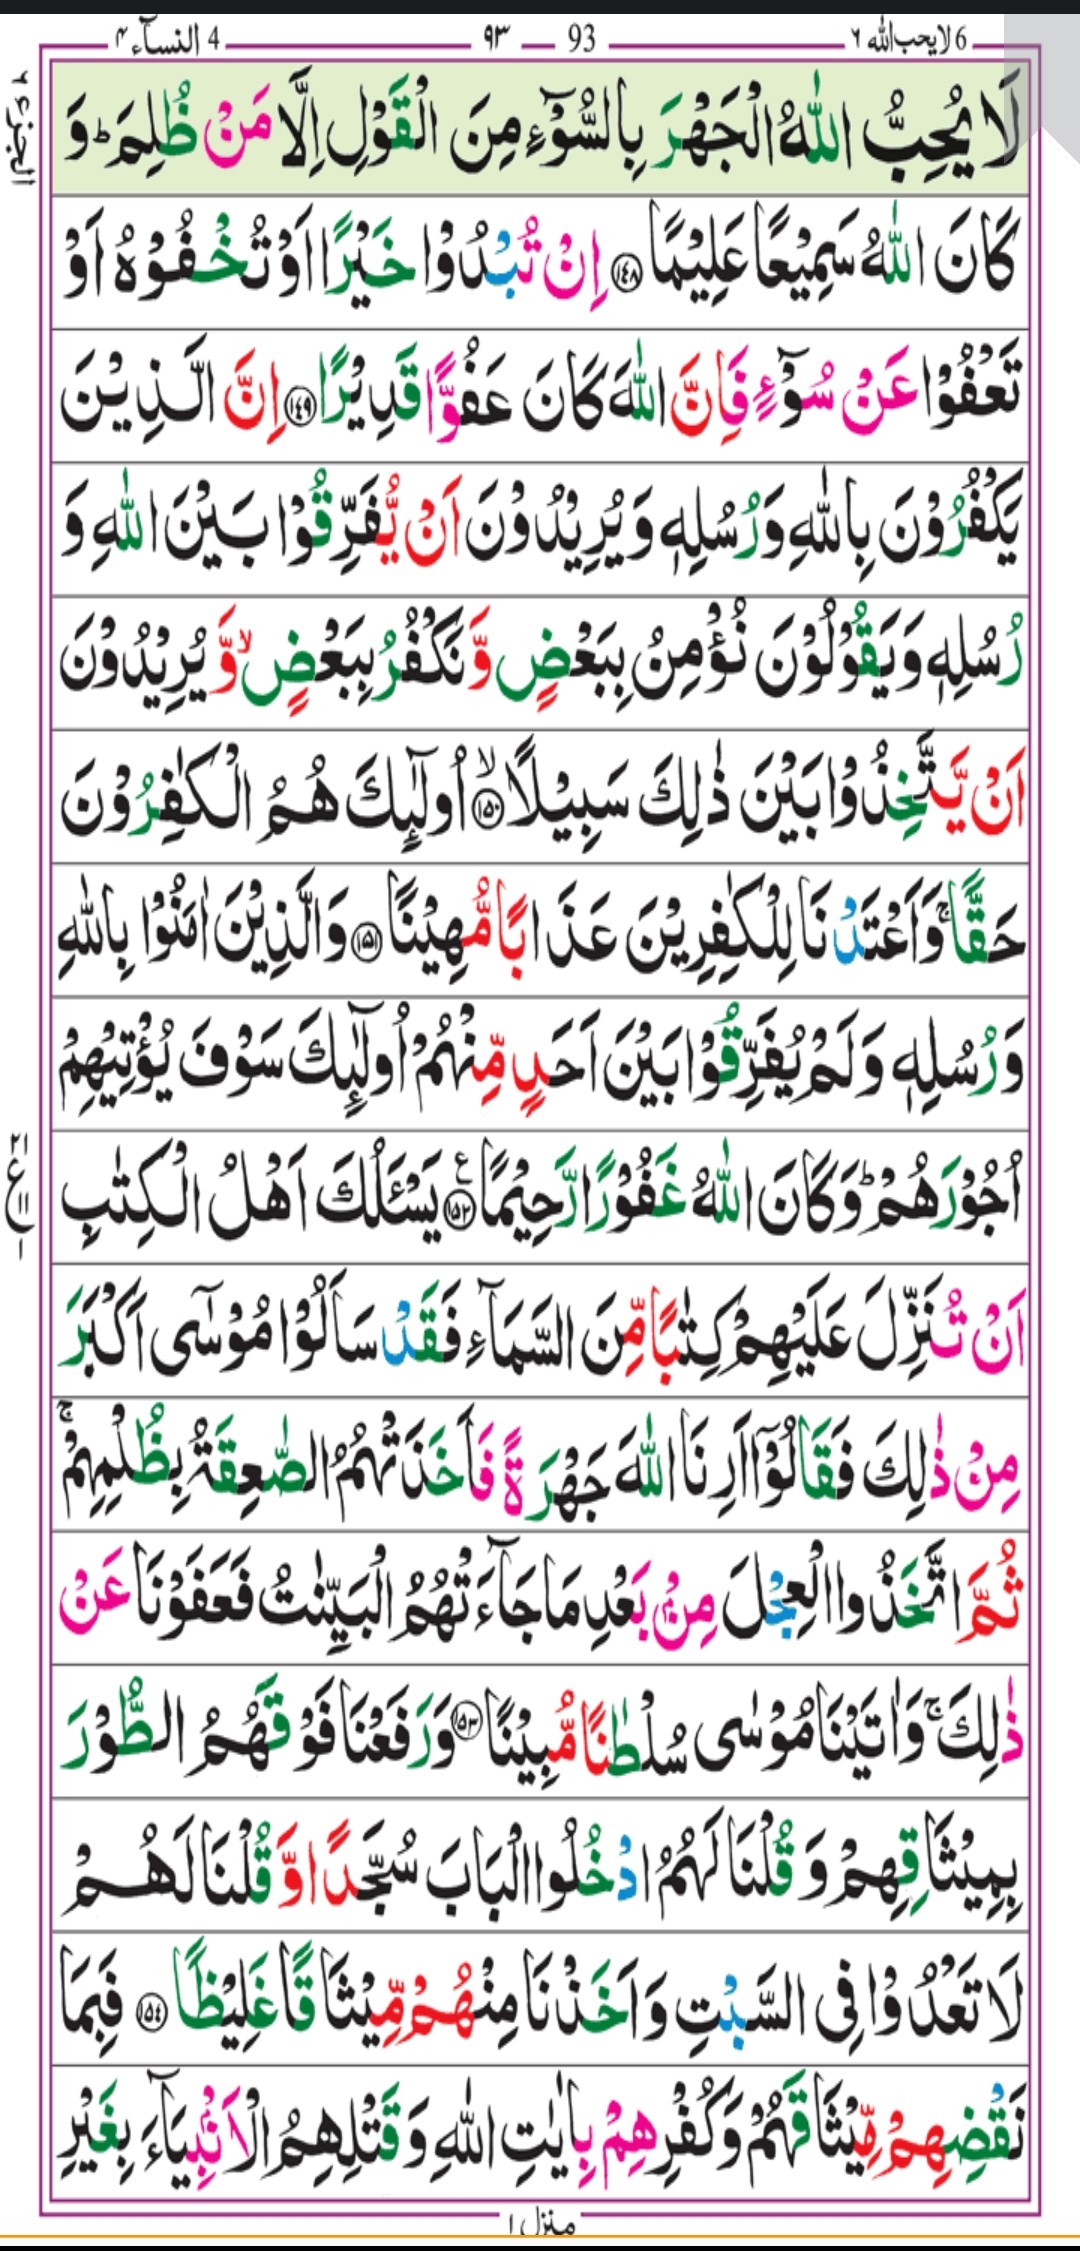 6 لا يحب الله ٦ 93 ٩٣ 4 النسآء ٤
الجزء ٦
لَا يُحِبُّ اللّٰهُ الْجَهْرَ بِالسُّوْٓءِ مِنَ الْقَوْلِ اِلَّا مَنْ ظُلِمَ ؕ وَ
كَانَ اللّٰهُ سَمِيْعًا عَلِيْمًا ﴿١٤٨﴾ اِنْ تُبْدُوْا خَيْرًا اَوْ تُخْفُوْهُ اَوْ
تَعْفُوْا عَنْ سُوْٓءٍ فَاِنَّ اللّٰهَ كَانَ عَفُوًّا قَدِيْرًا ﴿١٤٩﴾ اِنَّ الَّذِيْنَ
يَكْفُرُوْنَ بِاللّٰهِ وَرُسُلِهٖ وَيُرِيْدُوْنَ اَنْ يُّفَرِّقُوْا بَيْنَ اللّٰهِ وَ
رُسُلِهٖ وَيَقُوْلُوْنَ نُؤْمِنُ بِبَعْضٍ وَّنَكْفُرُ بِبَعْضٍ ۙ وَّيُرِيْدُوْنَ
اَنْ يَّتَّخِذُوْا بَيْنَ ذٰلِكَ سَبِيْلًا ﴿١٥٠﴾ ۙ اُولٰٓئِكَ هُمُ الْكٰفِرُوْنَ
حَقًّا ۚ وَاَعْتَدْنَا لِلْكٰفِرِيْنَ عَذَابًا مُّهِيْنًا ﴿١٥١﴾ وَالَّذِيْنَ اٰمَنُوْا بِاللّٰهِ
وَرُسُلِهٖ وَلَمْ يُفَرِّقُوْا بَيْنَ اَحَدٍ مِّنْهُمْ اُولٰٓئِكَ سَوْفَ يُؤْتِيْهِمْ
اُجُوْرَهُمْ ؕ وَكَانَ اللّٰهُ غَفُوْرًا رَّحِيْمًا ﴿١٥٢﴾ ع يَسْـَٔلُكَ اَهْلُ الْكِتٰبِ
٢١ ع ١١ ١
اَنْ تُنَزِّلَ عَلَيْهِمْ كِتٰبًا مِّنَ السَّمَآءِ فَقَدْ سَاَلُوْا مُوْسٰٓى اَكْبَرَ
مِنْ ذٰلِكَ فَقَالُوْٓا اَرِنَا اللّٰهَ جَهْرَةً فَاَخَذَتْهُمُ الصّٰعِقَةُ بِظُلْمِهِمْ ۚ
ثُمَّ اتَّخَذُوا الْعِجْلَ مِنْۢ بَعْدِ مَا جَآءَتْهُمُ الْبَيِّنٰتُ فَعَفَوْنَا عَنْ
ذٰلِكَ ۚ وَاٰتَيْنَا مُوْسٰى سُلْطٰنًا مُّبِيْنًا ﴿١٥٣﴾ وَرَفَعْنَا فَوْقَهُمُ الطُّوْرَ
بِمِيْثَاقِهِمْ وَ قُلْنَا لَهُمُ ادْخُلُوا الْبَابَ سُجَّدًا وَّقُلْنَا لَهُمْ
لَا تَعْدُوْا فِى السَّبْتِ وَاَخَذْنَا مِنْهُمْ مِّيْثَاقًا غَلِيْظًا ﴿١٥٤﴾ فَبِمَا
نَقْضِهِمْ مِّيْثَاقَهُمْ وَكُفْرِهِمْ بِاٰيٰتِ اللّٰهِ وَقَتْلِهِمُ الْاَنْۢبِيَآءَ بِغَيْرِ
منزل ١